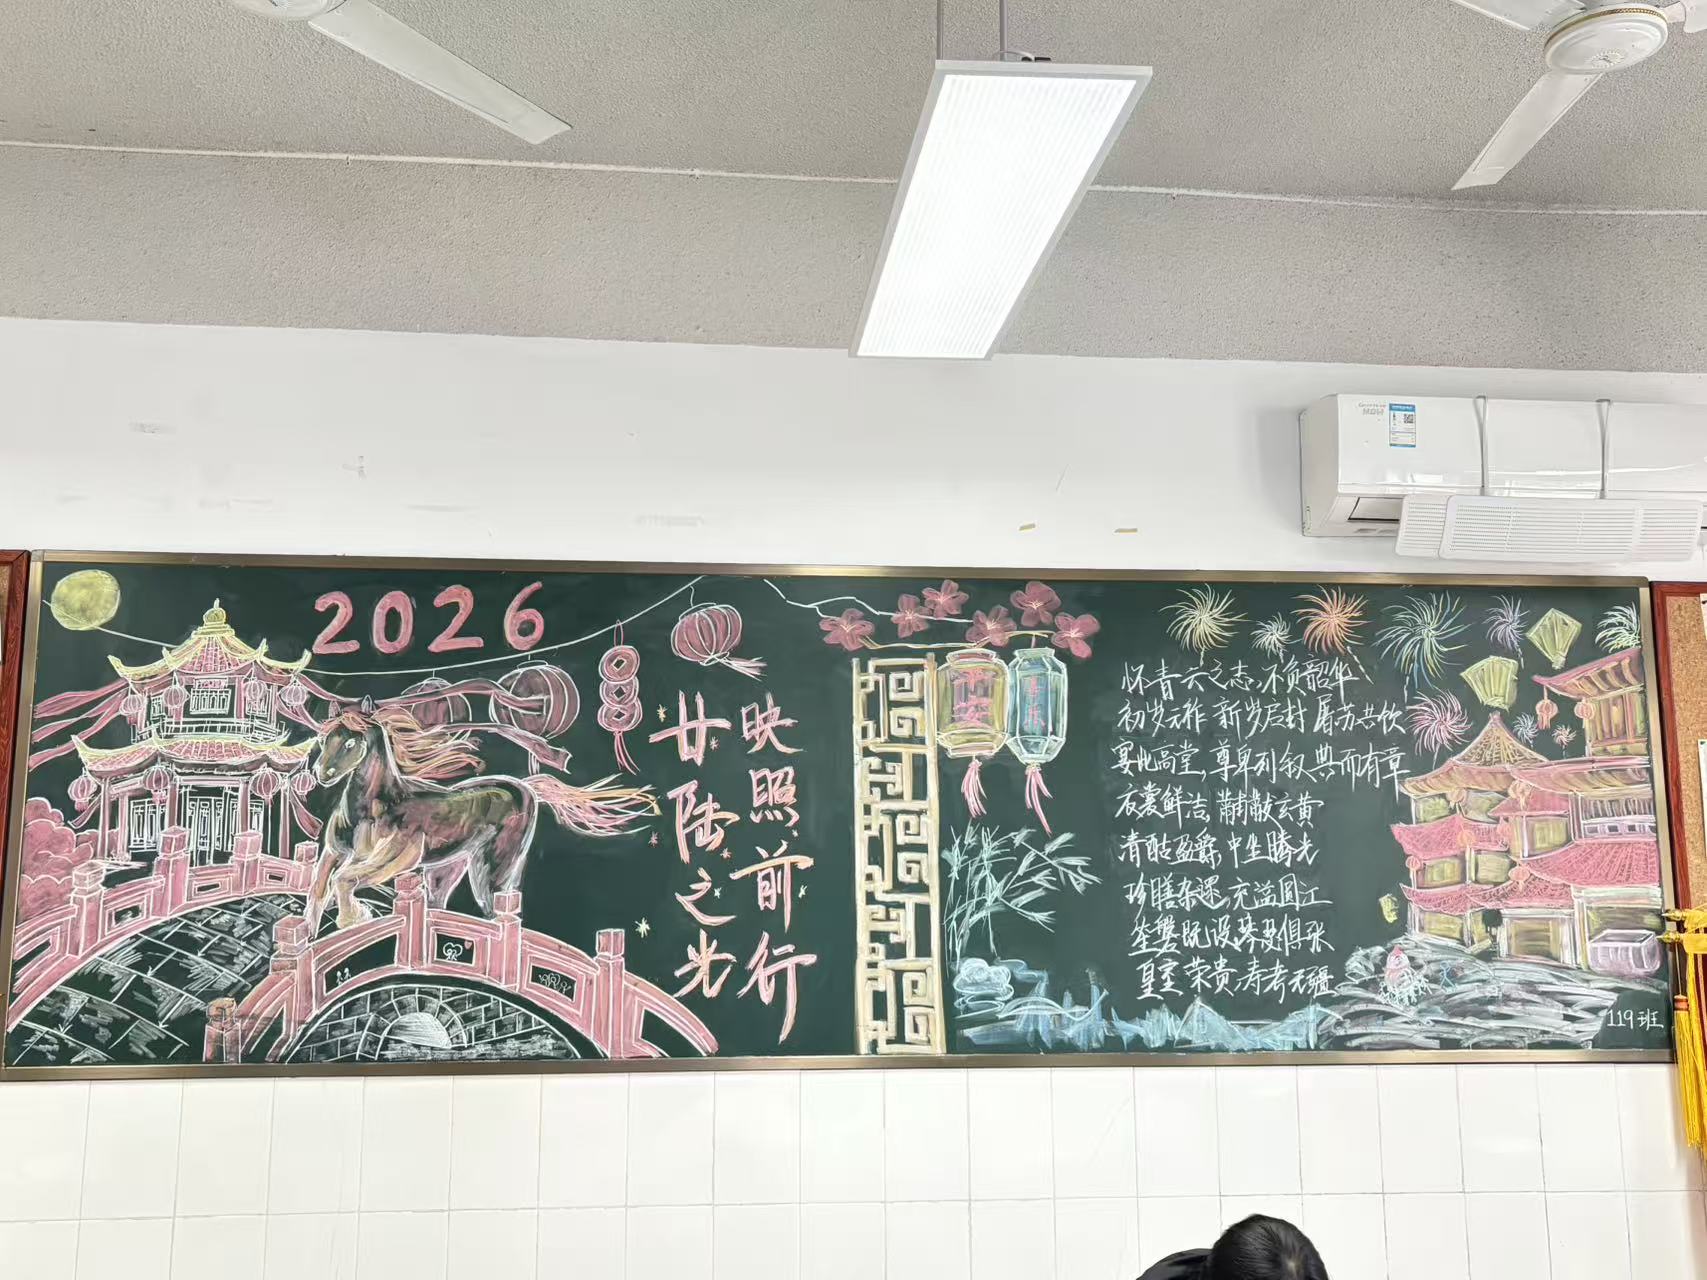 2026
廿陆之光
映照前行
平安
喜乐
怀青云之志,不负韶华
初岁元祚 新岁启封 屠苏共饮
宴此高堂,尊卑列叙,典而有章
衣裳鲜洁,黼黻玄黄
清酤盈爵,中坐腾光
珍膳杂遝,充溢圆江
笙磬既设,琴瑟俱张
皇室荣贵,寿考无疆
119班